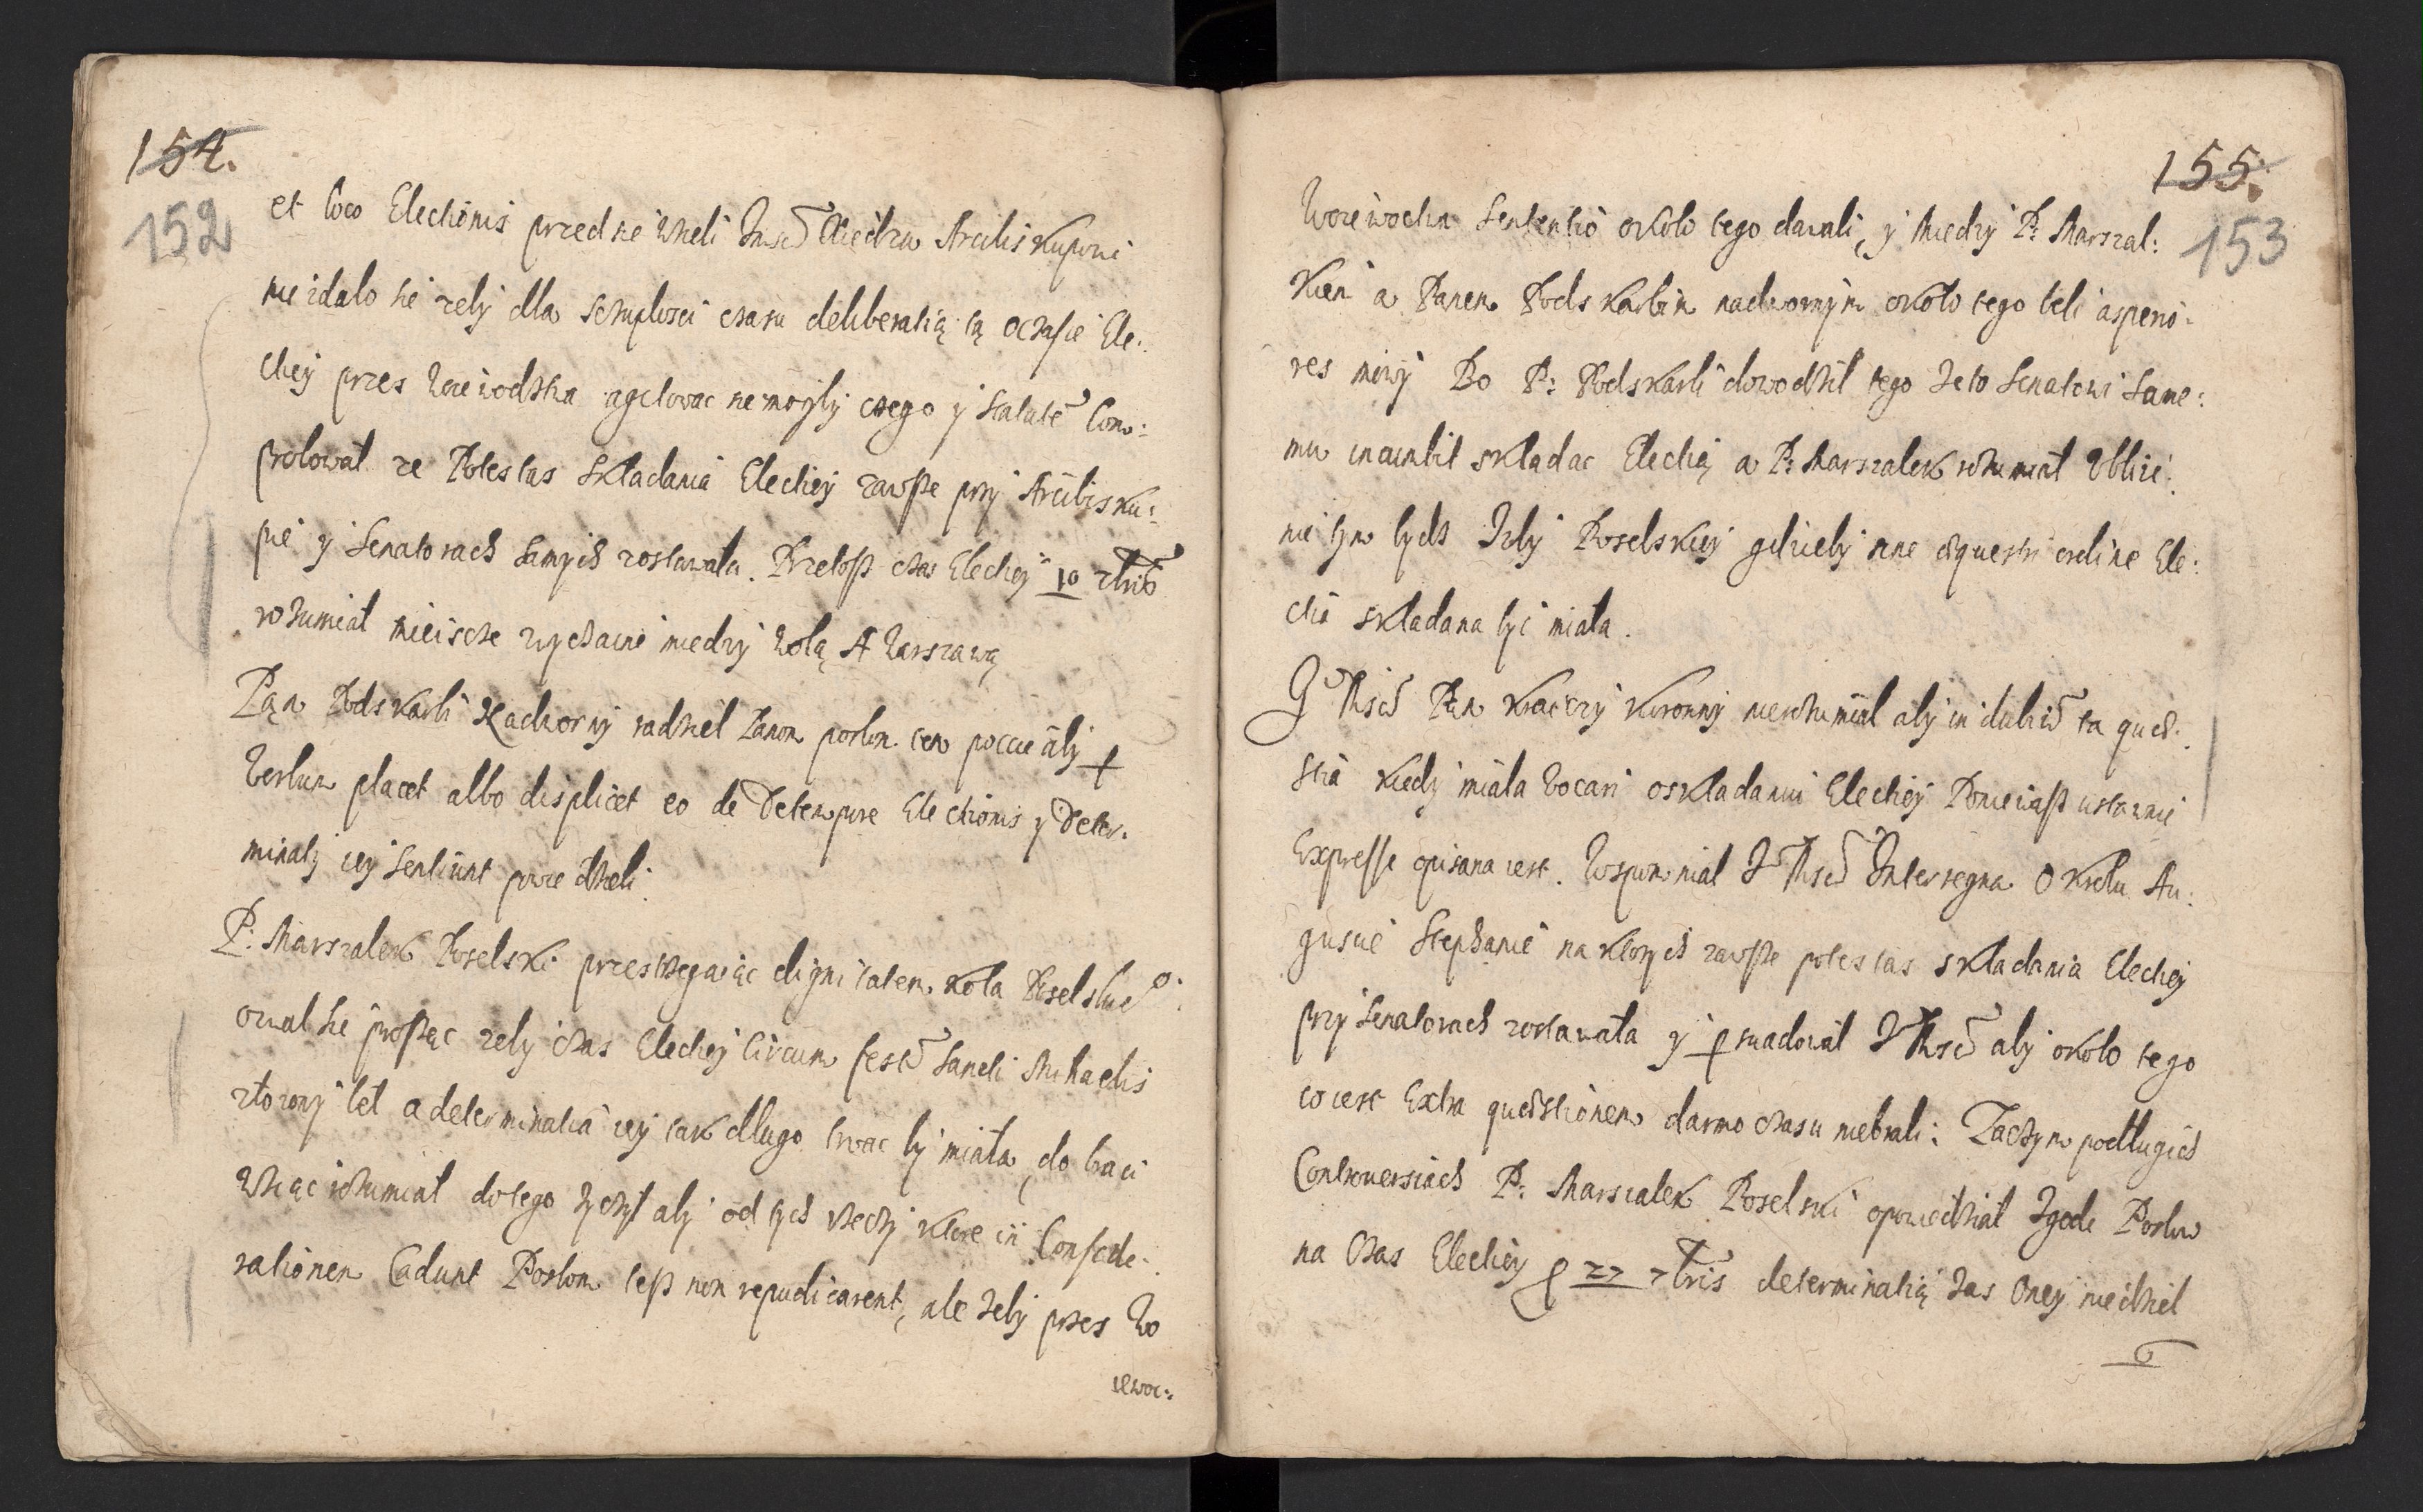 154.
152
et loco Elechionis przed sie wzieli Jmsci Xiedzu Arcibiskupowi
nie zdalo sie zeby dla sczuplosci czasu deliberatią tą oczasie Ele:
ctiey przes Woiewodztwa agitowac niemogly czego y salute Com:
probowal ze Potestas składania Electiey zawsze przy Arcibisku:
pie y Senatorach samych zostawala. Przetosz czas Electiey 10
rozumiał mieiscze zwyczaine miedzy Wolą A Warszawą
Pąn Podskarbi Nadworny radził Panom posłom
Verbum placet albo displicet eo de tempore Electionis y Deter:
minaty iey sentiunt powiedzieli.
P: Marszalek Poselski przestrzegaiąc dignitatem koła Poselskieo
ozwal sie proszęc zeby czas Electiey circum festu Sancti Michaelis
złozony beł a determinatia iey tak długo trwac by miała, do
wziąc rozumiał dotego zyczył aby od tych rzeczy ktore in Confede:
rationem Cadunt Posłom tesz non repudicarent, ale zeby przes Wo
iewoc:
155.
153
Woiewoctwa Sententio około tego dawali, y miedzy P: Marszal:
kiem a Panem Podskarbim nadwornym około tego beli asperio:
res mowy Bo P: Podskarbi dowodził tego ze to Senatowi same:
mu incumbit składac Electią a P: Marszalek rozumiał Ubliże:
nie tym bydz Izby Poselskiey gdzieby sine equestri ordine Ele:
ctia składana byc miała.
Jo Msci Pan Kraiczy Koronny nierozumiał aby in dubiu ta que:
stia kiedy miała vocari oskładaniu Electiey Poniewasz ustawnie
Expresse opisana iest. Wspominał Jo Msci Interregna O Krolu Au:
guscie Stephanie na ktorych zawsze potestas składania Electiey
przy Senatorach zostawała y p suadował J Msci aby około tego
co iest Extra questionem darmo czasu niebrali: Zaczym podługich
Controuersiach P: Marszalek Poselski opowiedział Zgode Posłow
na Czas Electiey p 27 7bris determinatią zas Oney niedziel
6